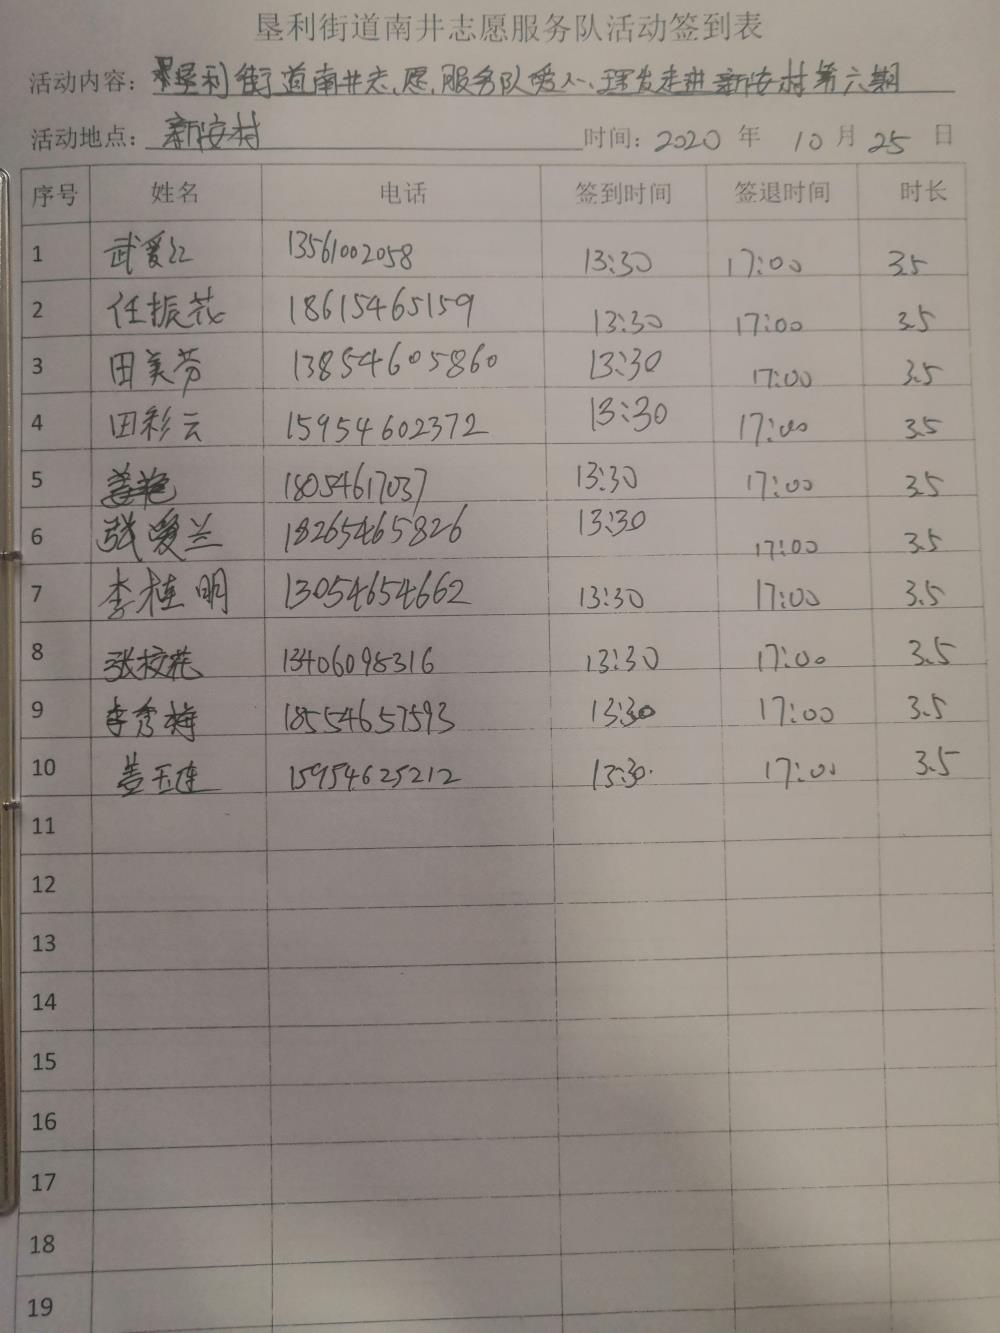 垦利街道南井志愿服务队活动签到表
活动内容：垦利街道南井志愿服务队爱心理发走进新安村第六期
活动地点：新安村 时间：2020 年 10 月 25 日
序号 姓名 电话 签到时间 签退时间 时长
1 武爱红 13561002058 13:30 17:00 3.5
2 任振花 18615465159 13:30 17:00 3.5
3 田美芬 13854605860 13:30 17:00 3.5
4 田彩云 15954602372 13:30 17:00 3.5
5 18054617037 13:30 17:00 3.5
6 张爱兰 18265465826 13:30 17:00 3.5
7 李桂明 13054654662 13:30 17:00 3.5
8 张校花 13406098316 13:30 17:00 3.5
9 李秀梅 18554657593 13:30 17:00 3.5
10 盖玉连 15954625212 13:30 17:00 3.5
11
12
13
14
15
16
17
18
19